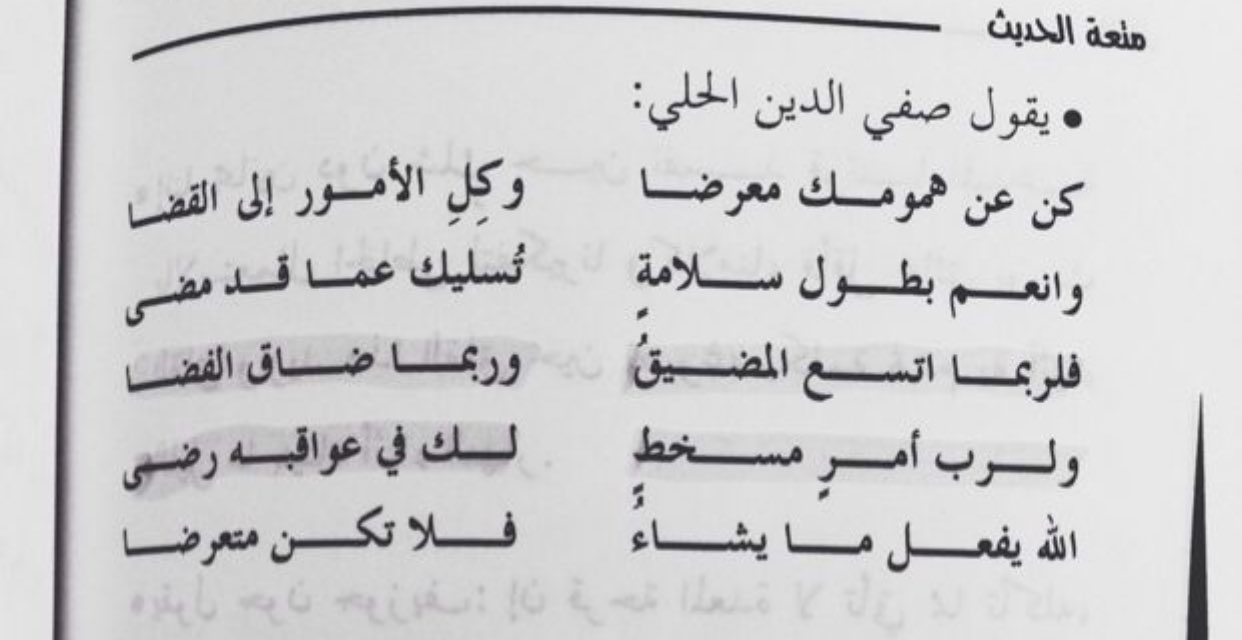 متعة الحديث
• يقول صفي الدين الحلي:
كن عن همومك معرضا وكِلِ الأمور إلى القضا
وانعم بطول سلامةٍ تُسليك عما قد مضى
فلربما اتسع المضيقُ وربما ضاق الفضا
ولرب أمرٍ مسخطٍ لك في عواقبه رضى
الله يفعل ما يشاءُ فلا تكن متعرضا